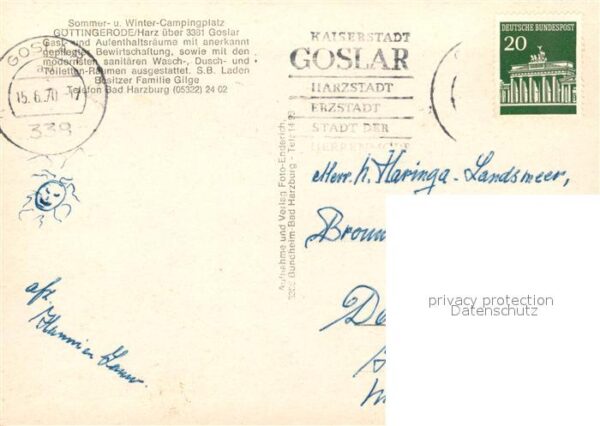 Sommer- u. Winter-Campingplatz
GÖTTINGERODE/Harz über 3381 Goslar
Gast- und Aufenthaltsräume mit anerkannt
gepflegter Bewirtschaftung, sowie mit den
modernsten sanitären Wasch-, Dusch- und
Toiletten-Räumen ausgestattet. S.B. Laden
Besitzer Familie Gilge
Telefon Bad Harzburg (05322) 24 02
GOSLAR
15.6.70
339
KAISERSTADT
GOSLAR
HARZSTADT
ERZSTADT
STADT DER
DEUTSCHE BUNDESPOST
20
Aufnahme und Verlag Foto-Enderich,
Bündheim-Bad Harzburg - Tel.
Herr. h. Haringa-Landsmeer,
privacy protection
Datenschutz
afz.